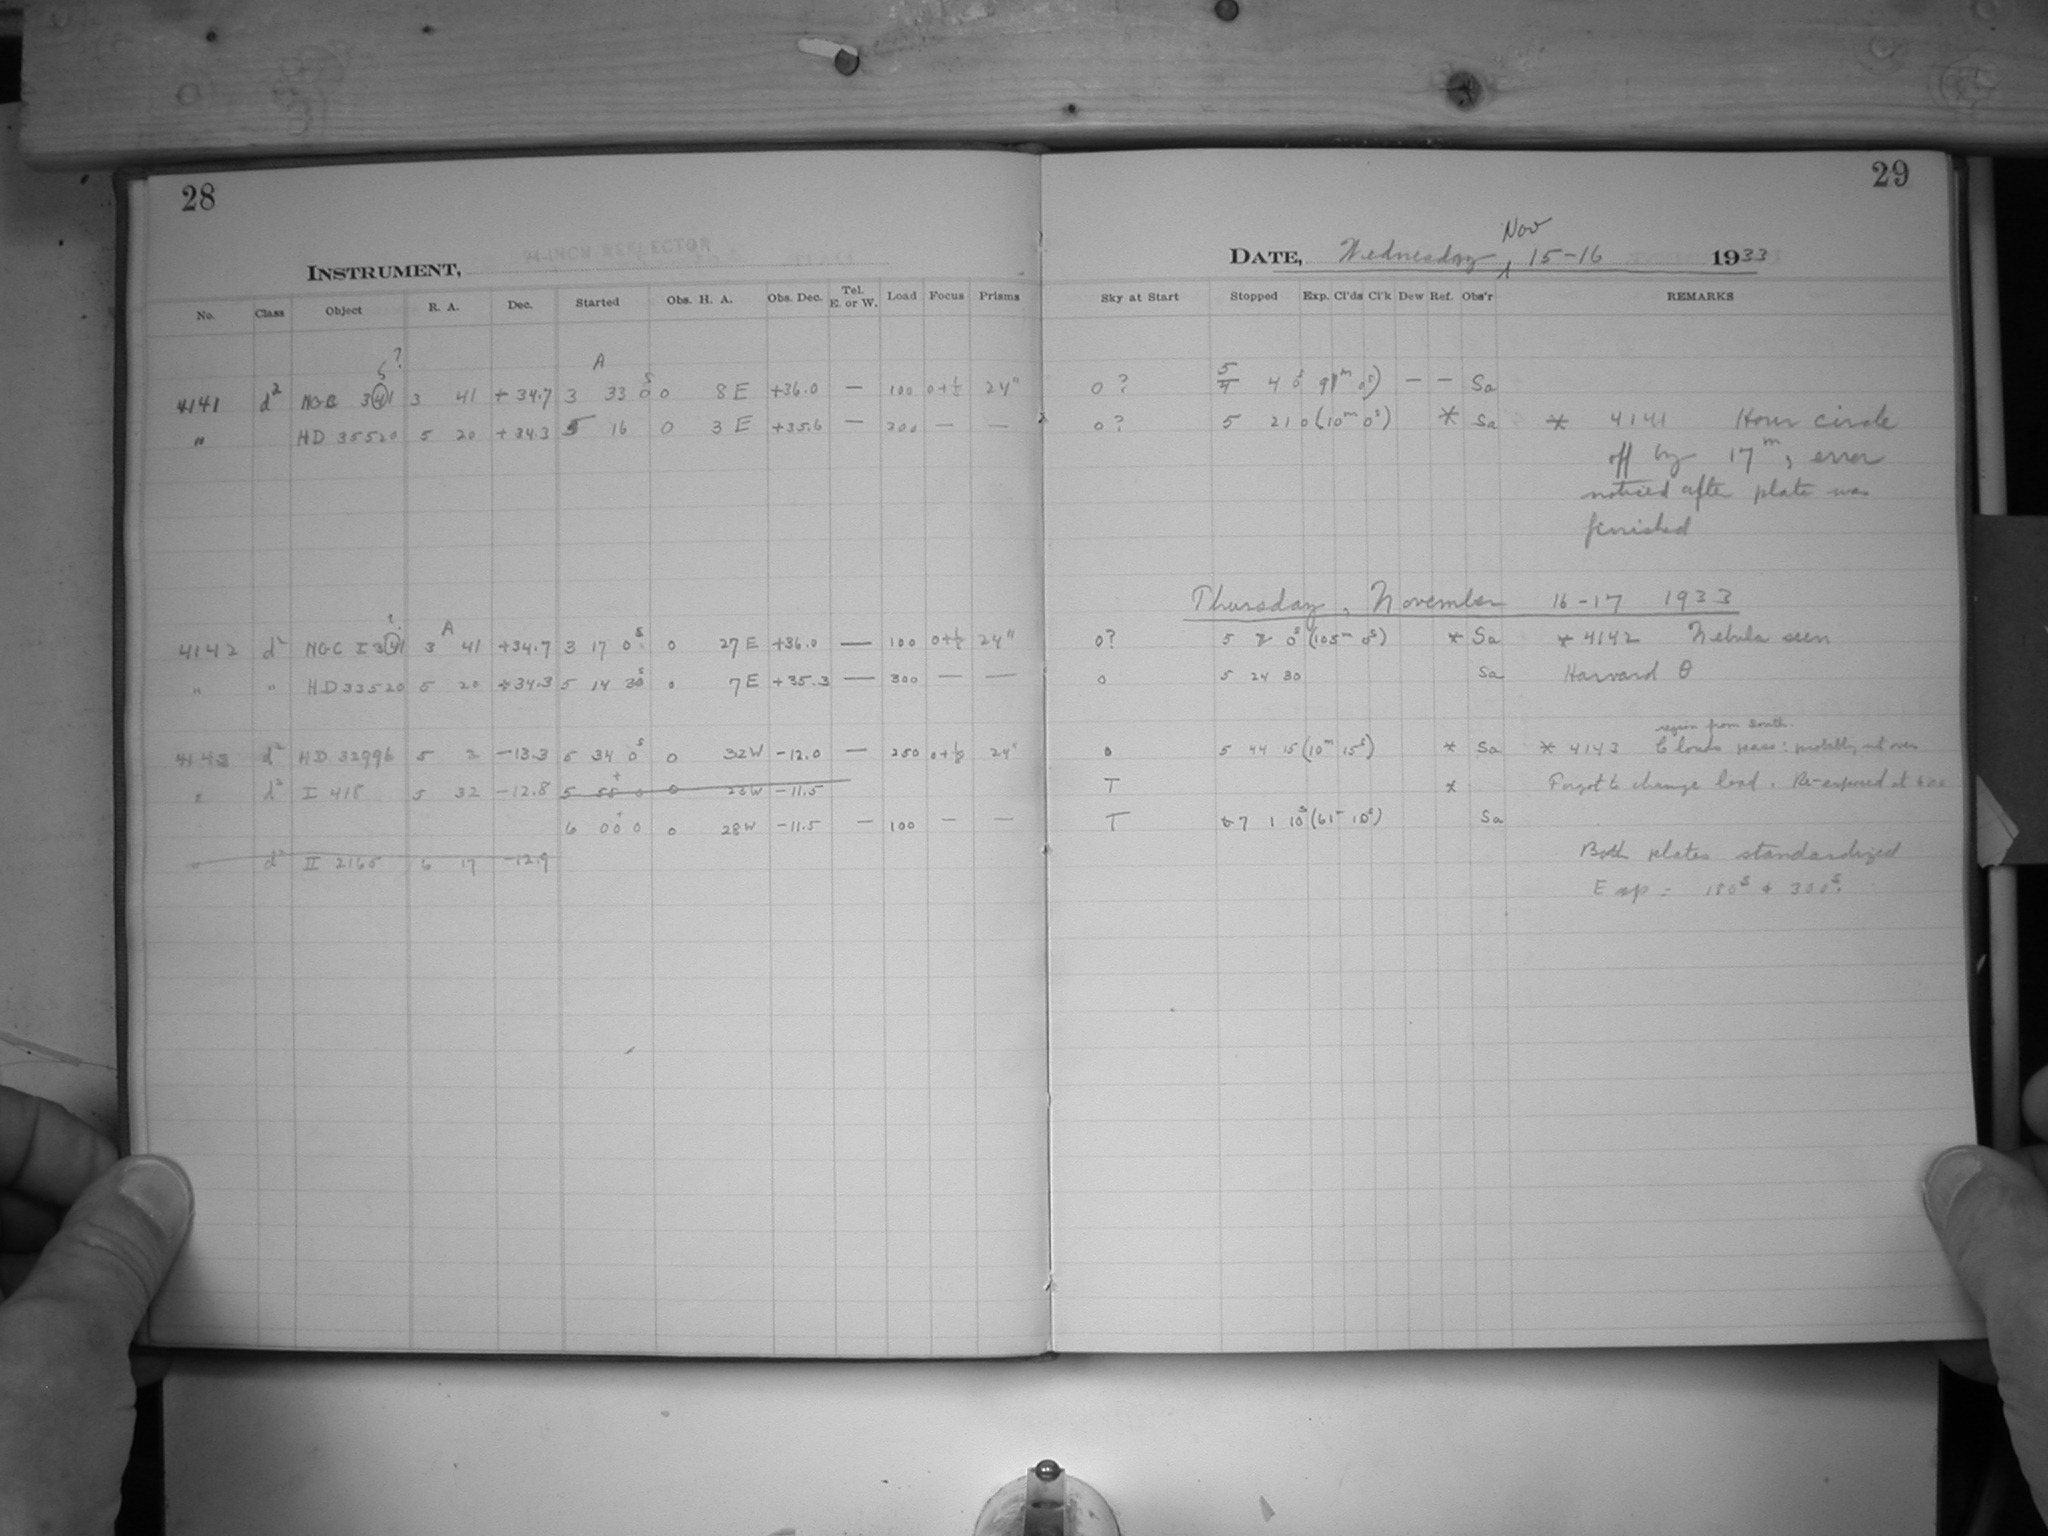 28
INSTRUMENT, 24-INCH REFLECTOR
No. Class Object R. A. Dec. Started Obs. H. A. Obs. Dec. Tel. E. or W. Load Focus Prisms
5 ? A
4141 d² NGC 341 3 41 +34.7 3 33 0ˢ 0 8 E +36.0 — 100 0+½ 24"
" HD 35520 5 20 +34.3 5 16 0 3 E +35.6 — 300 — —
? A
4142 d² NGC I 341 3 41 +34.7 3 17 0ˢ 0 27 E +36.0 — 100 24"
" " HD 33520 5 20 +34.3 5 14 30ˢ 0 7 E +35.3 — 300 — —
4143 d² HD 32996 5 2 -13.3 5 34 0ˢ 0 32W -12.0 — 250 0+⅛ 24"
" d² I 418 5 32 -12.8 5 55 0 0 23W -11.5
6 00 0 0 28W -11.5 — 100 — —
" d² II 2165 6 17 -12.9
29
DATE, Wednesday, Nov 15-16 1933
Sky at Start Stopped Exp. Cl'ds Cl'k Dew Ref. Obs'r REMARKS
0 ? 5 4 0ˢ 91ᵐ 0ˢ) — — Sa
0 ? 5 21 0 (10ᵐ 0ˢ) * Sa * 4141 Hour circle
off by 17ᵐ, error
noticed after plate was
finished
Thursday, November 16-17 1933
0? 5 2 0ˢ (105ᵐ 0ˢ) * Sa * 4142 Nebula seen
0 5 24 30 Sa Harvard θ
region from South.
0 5 44 15 (10ᵐ 15ˢ) * Sa * 4143 Clouds pass: probably not over
T * Forgot to change load. Re-exposed at 6:00
T 7 1 10ˢ (61ᵐ 10ˢ) Sa
Both plates standardized
Exp = 180ˢ & 300ˢ.